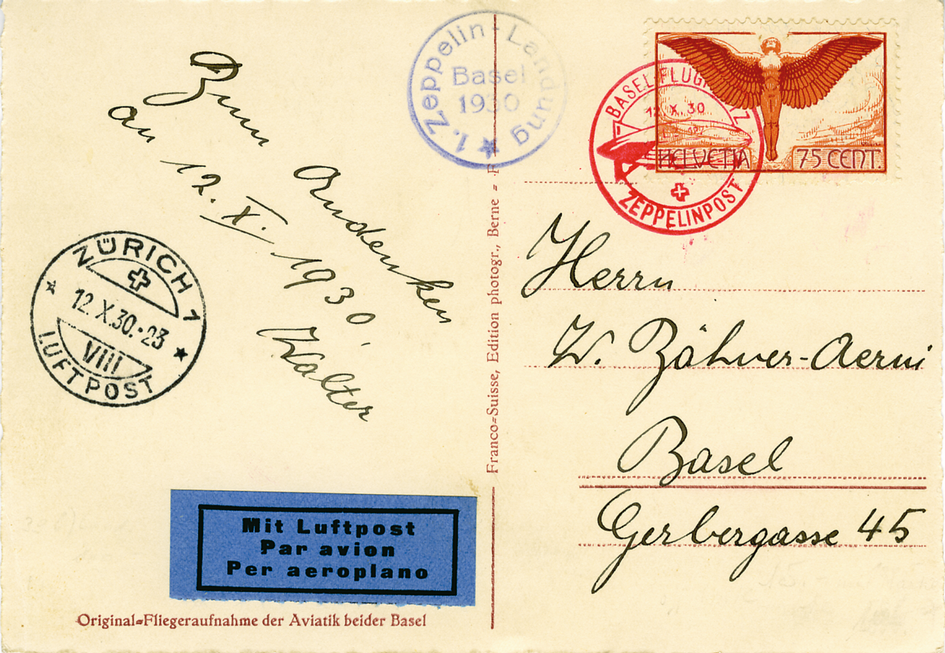 Zum Andenken
an 12. X. 1930.
Walter
1. Zeppelin-Landung
Basel
1930
BASEL FLUGPLATZ
12. X. 30.
ZEPPELINPOST
HELVETIA
75 CENT.
ZÜRICH 1
12. X. 30.-23
VIII
LUFTPOST
Franco-Suisse, Edition photogr., Berne
Herrn
W. Zähner-Aerni
Basel
Gerbergasse 45
Mit Luftpost
Par avion
Per aeroplano
Original-Fliegeraufnahme der Aviatik beider Basel